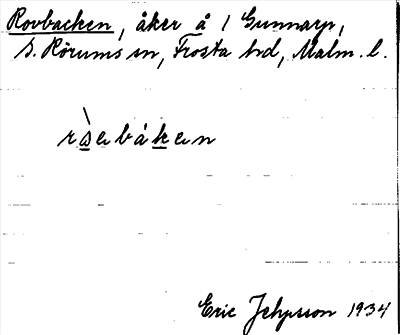 Rovbacken, åker å 1 Gunnarp,
S. Rörums sn, Frosta hd, Malm. l.
Eric Jeppsson 1934